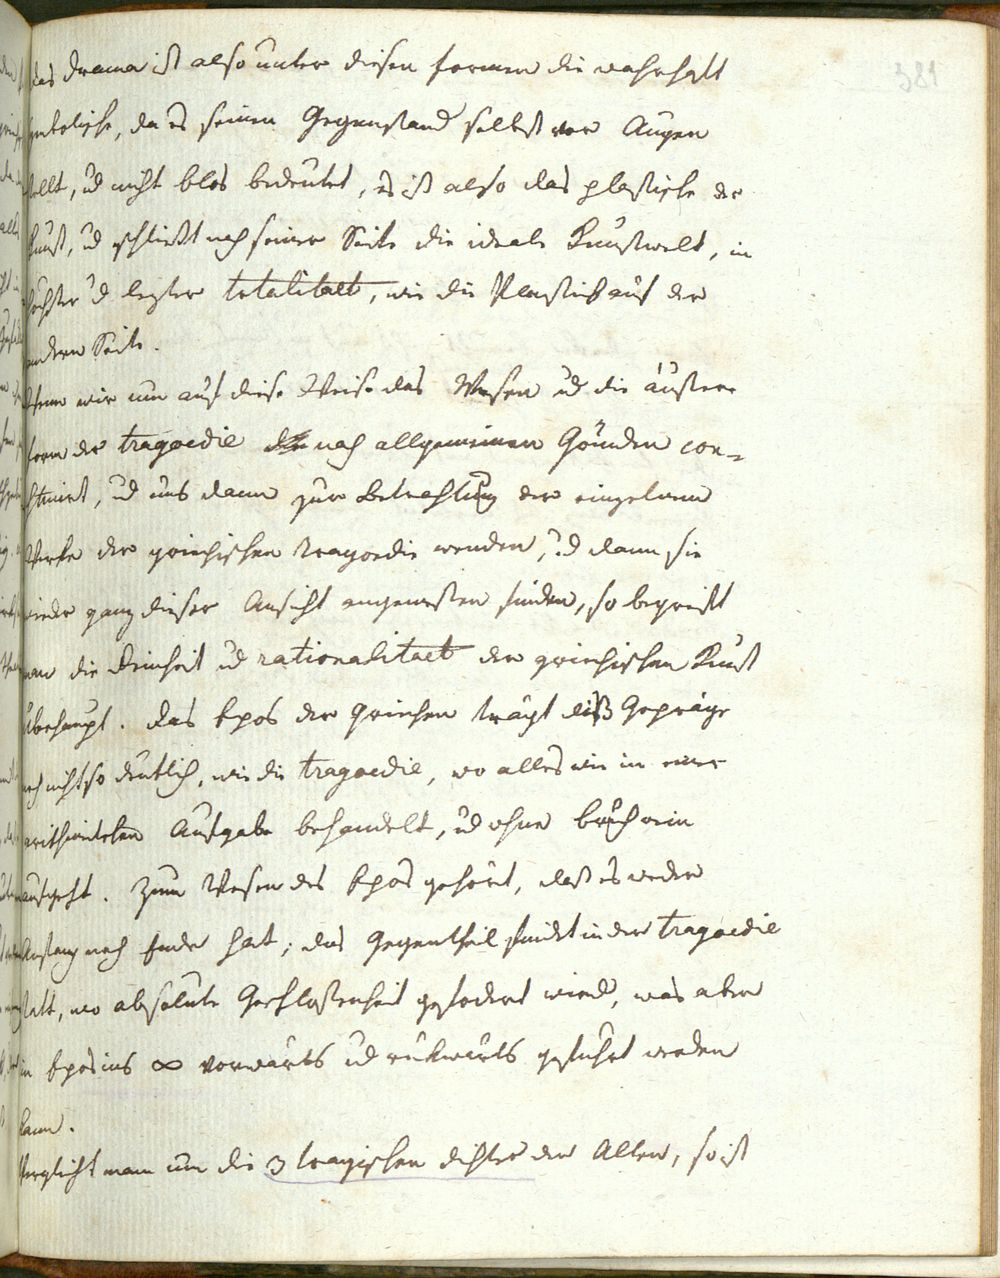 381
das drama ist also unter diesen formen die wahrhaft
symbolische, da es seinen Gegenstand selbst vor Augen
stellt, ud nicht blos bedeutet, es ist also das plastische der
Kunst, ud schließt nach seiner Seite die ideale Kunstwelt, in
höchster ud lezter totalitaet, wie die Plastik auf der
andern Seite.
Wenn wir nun auf diese Weise das Wesen ud die äußere
form der tragoedie nach allgemeinen Gründen con-
struirt, ud uns dann zur Betrachtung der einzelnen
Werke der griechischen tragoedie wenden, ud dann sie
wieder ganz dieser Ansicht angemessen finden, so begreift
man die Reinheit ud rationalitaet der griechischen Kunst
überhaupt. Das Epos der Griechen trägt diß Gepräge
noch nicht so deutlich, wie die tragoedie, wo alles wie in einer
arithmetischen Aufgabe behandelt, ud ohne bruch rein
aufgeht. Zum Wesen des Epos gehört, daß es weder
Anfang noch Ende hat; das Gegentheil findet in der tragoedie
statt, wo absolute Geschloßenheit gefodert wird, was aber
im Epos ins ∞ vorwärts ud rükwärts geführt werden
kann.
Vergleicht man nun die 3 tragischen dichter der Alten, so ist